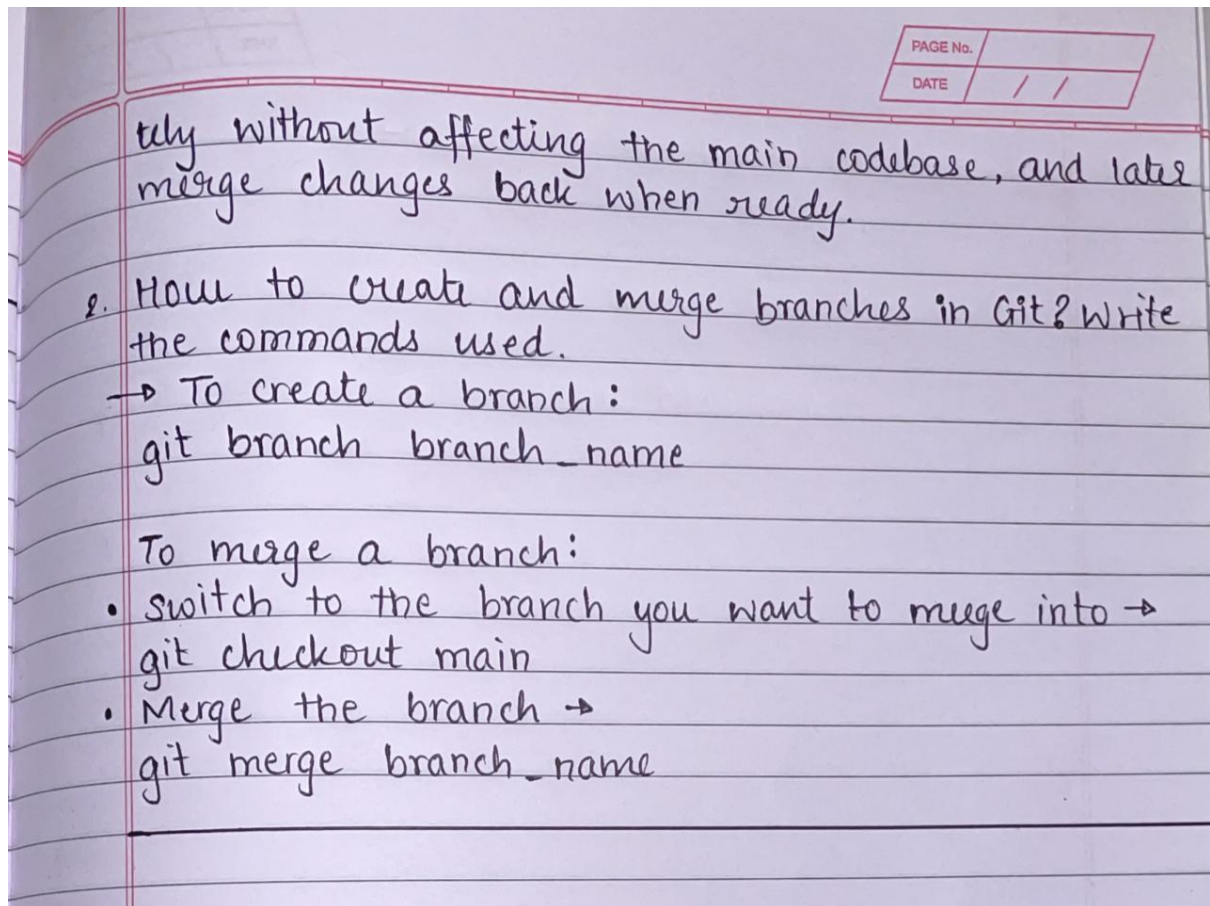 PAGE No.
DATE / /
tely without affecting the main codebase, and later
merge changes back when ready.
2. How to create and merge branches in Git? Write
the commands used.
→ To create a branch:
git branch branch_name
To merge a branch:
• switch to the branch you want to merge into →
git checkout main
• Merge the branch →
git merge branch_name